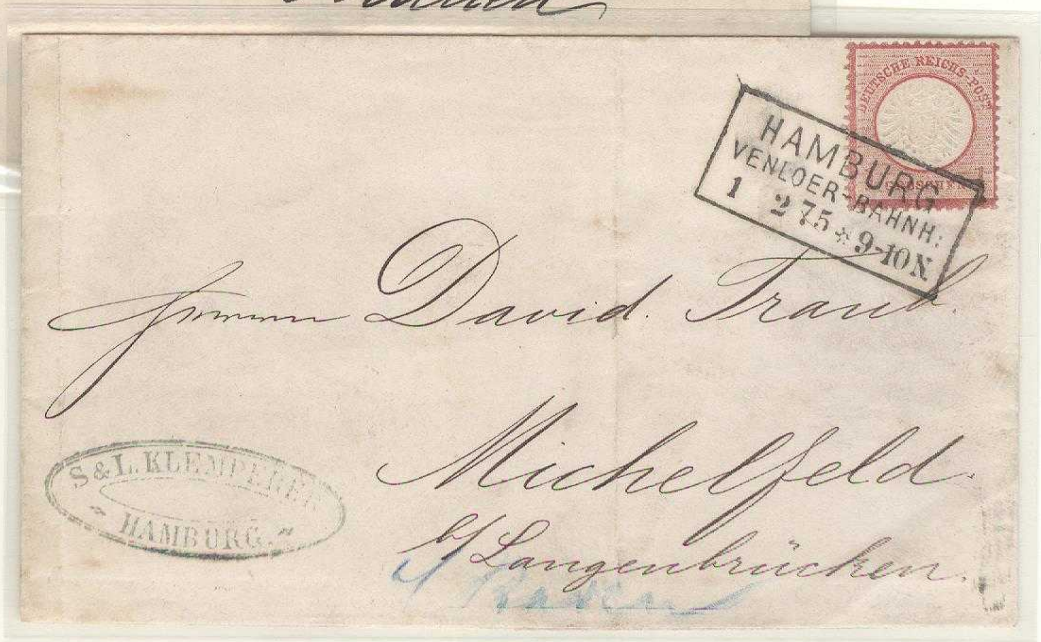 DEUTSCHE REICHS-POST
HAMBURG
VENLOER-BAHNH:
1 2 75 * 9-10 N
Herrn David Traub.
Michelfeld
b/Langenbrücken.
i/Baden
S & L. KLEMPERER
HAMBURG.